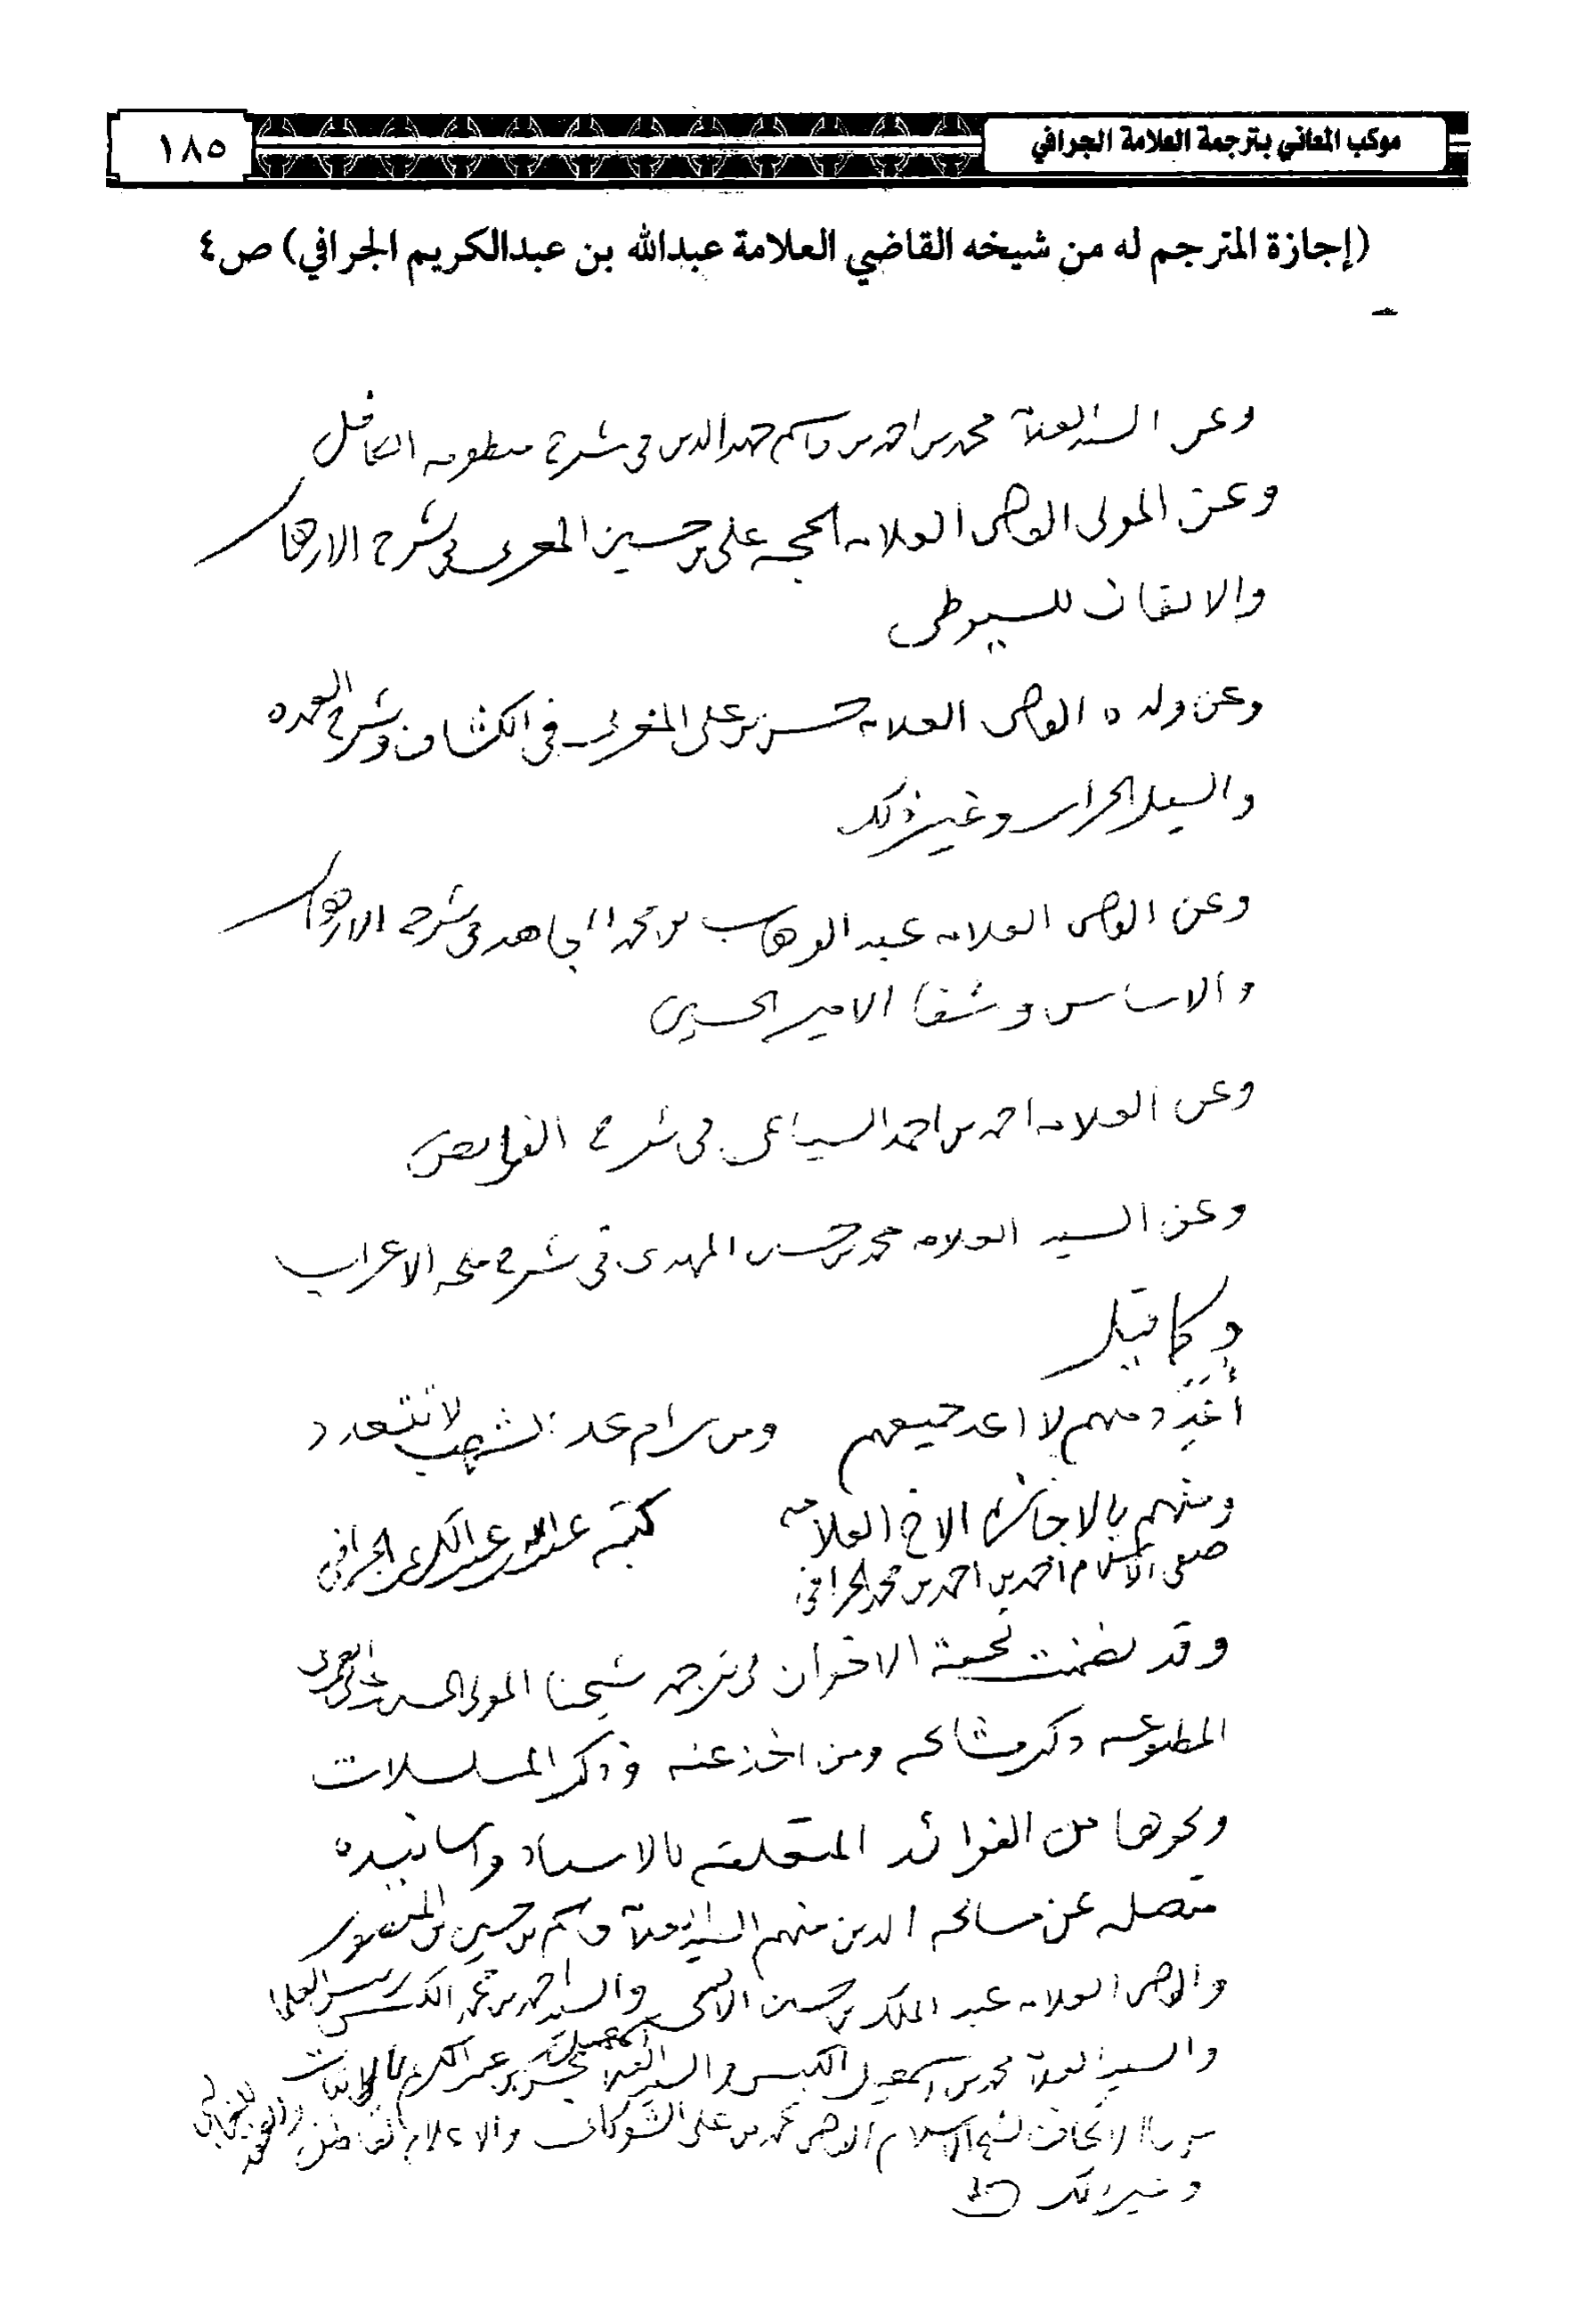 موكب المعاني بترجمة العلامة الجرافي
١٨٥
(إجازة المترجم له من شيخه القاضي العلامة عبدالله بن عبدالكريم الجرافي) ص٤
وعن السيد العلامة محمد بن احمد بن قاسم حميد الدين في شرح منظومه الكافل
وعن المولى القاضي العلامه الحجه علي بن حسين المغربي في شرح الازهار
والاتقان للسيوطي
وعن ولده القاضي العلامه حسين بن علي المغربي في الكشاف وشرح العمده
والسيل الجرار وغير ذلك
وعن القاضي العلامه عبد الوهاب بن محمد المجاهد في شرح الازهار
والاساس وشفا الامير الحسين
وعن العلامه احمد بن احمد السياغي في شرح الفرايض
وعن السيد العلامه محمد بن حسن المهدي في شرح ملحه الاعراب
وكما قيل
أعدد منهم لا اعد جميعهم ومن رام عد الشهب لا تتعدد
ومنهم بالاجازة الاخ العلامه
صفي الاسلام احمد بن احمد بن محمد الجرافي
كتبه عبدالله بن عبدالكريم الجرافي
وقد تضمنت تحفة الاخوان في ترجمه شيخنا المولى الحسين بن علي العمري
المطبوعه ذكر مشائخه ومن اخذ عنه وذكر المسلسلات
ونحوها من الفوائد المتعلقه بالاسناد واسانيده
متصله عن مشائخه الذين منهم السيد العلامة قاسم بن حسين بن المنصور
والقاضي العلامه عبد الملك بن حسين الآنسي والسيد احمد بن محمد الكبسي رئيس العلما
والسيد العلامة محمد بن اسمعيل الكبسي والسيد العلامة اسمعيل بن محسن بن عبد الكريم
الاتحاف لشيخ الاسلام القاضي محمد بن علي الشوكاني والاعلام
وغير ذلك